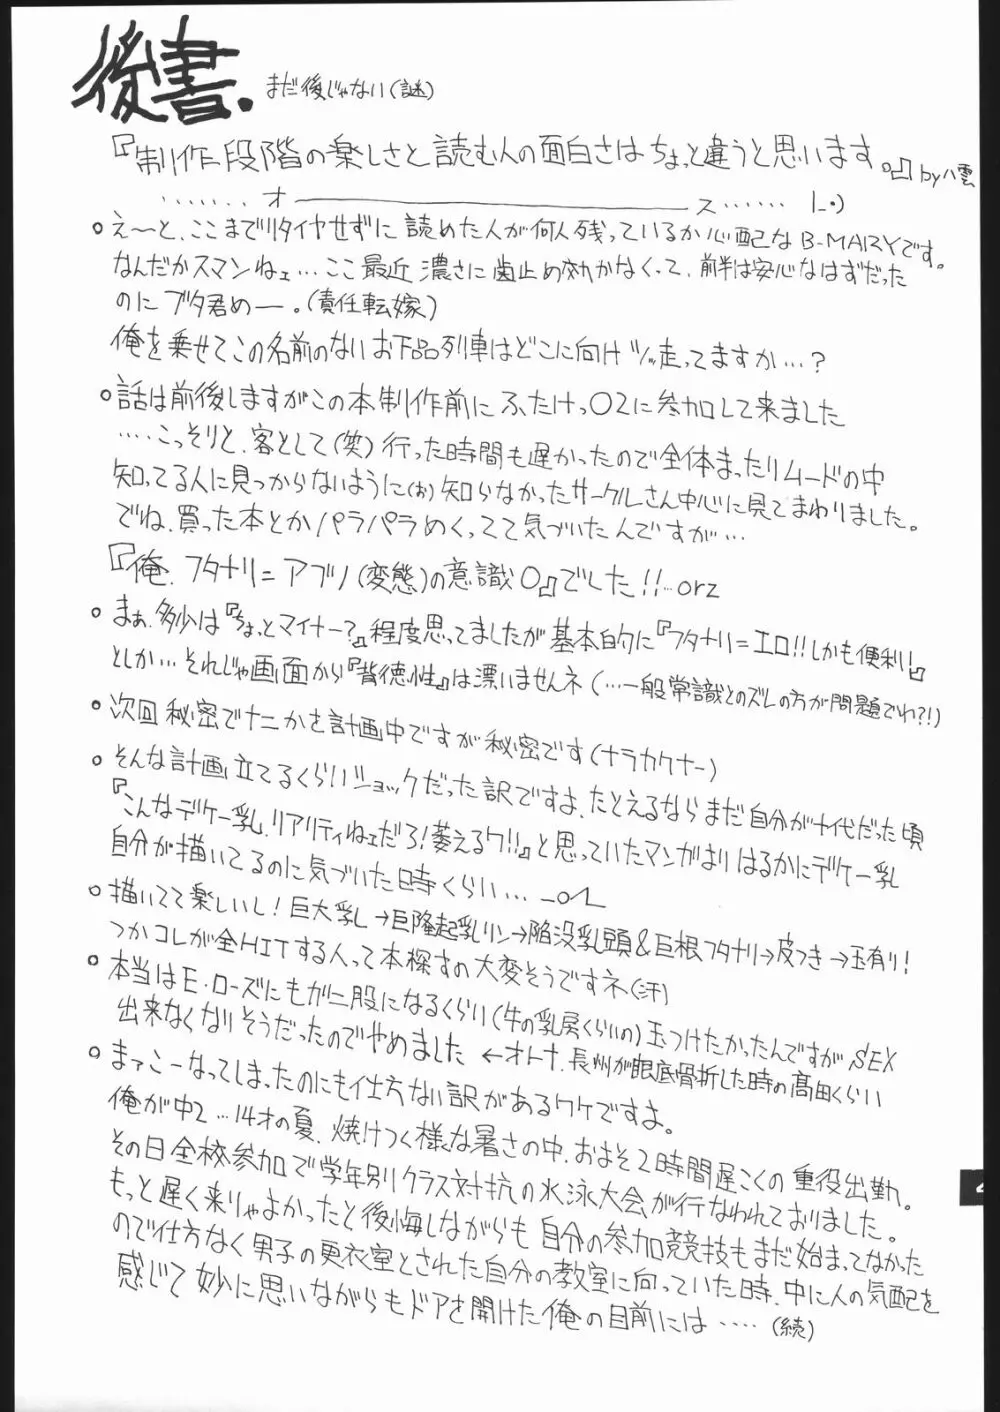 後書.
まだ後じゃない(謎)
『制作段階の楽しさと読む人の面白さはちょっと違うと思います。』by八雲
.......オ――――――ス......
。えーと、ここまでリタイヤせずに読めた人が何人残っているか心配なB-MARYです。
なんだかスマンねェ…ここ最近濃さに歯止め効かなくって、前半は安心なはずだった
のにブタ君めー。(責任転嫁)
俺を乗せてこの名前のないお下品列車はどこに向けツッ走ってますか…?
。話は前後しますがこの本制作前にふたけっ02に参加して来ました
‥‥こっそりと、客として(笑)行った時間も遅かったので全体まったりムードの中
知ってる人に見っからないように(お)知らなかったサークルさん中心に見てまわりました。
でね、買った本とかパラパラめくってて気づいたんですが…
『俺、フタナリ=アブノ(変態)の意識0』でした!!…orz
。まぁ、多少は『ちょっとマイナー?』程度思ってましたが基本的に『フタナリ=エロ!!しかも便利!』
としか…それじゃ画面から『背徳性』は漂いませんネ(…一般常識とのズレの方が問題でわ?!)
。次回秘密でナニかを計画中ですが秘密です(ナラカクナー)
。そんな計画立てるくらいショックだった訳ですよ、たとえるならまだ自分が十代だった頃
『こんなデケー乳、リアリティねェだろ!萎えるワ!!』と思っていたマンガよりはるかにデケー乳
自分が描いてるのに気づいた時くらい…
。描いてて楽しいし!巨大乳→巨隆起乳リン→陥没乳頭&巨根フタナリ→皮つき→玉有り!
つかコレが全HITする人って本探すの大変そうですネ(汗)
。本当はE・ローズにもが二股になるくらい(牛の乳房くらいの)玉つけたかったんですがSEX
出来なくなりそうだったのでやめました ←オトナ、長州が眼底骨折した時の髙田くらい
。まっこーなってしまったのにも仕方ない訳があるワケですよ。
俺が中2…14才の夏、焼けつく様な暑さの中、およそ2時間遅こくの重役出勤。
その日全校参加で学年別クラス対抗の水泳大会が行なわれておりました。
もっと遅く来りゃよかったと後悔しながらも自分の参加競技もまだ始まってなかった
ので仕方なく男子の更衣室とされた自分の教室に向っていた時、中に人の気配を
感じて妙に思いながらもドアを開けた俺の目前には‥‥(続)